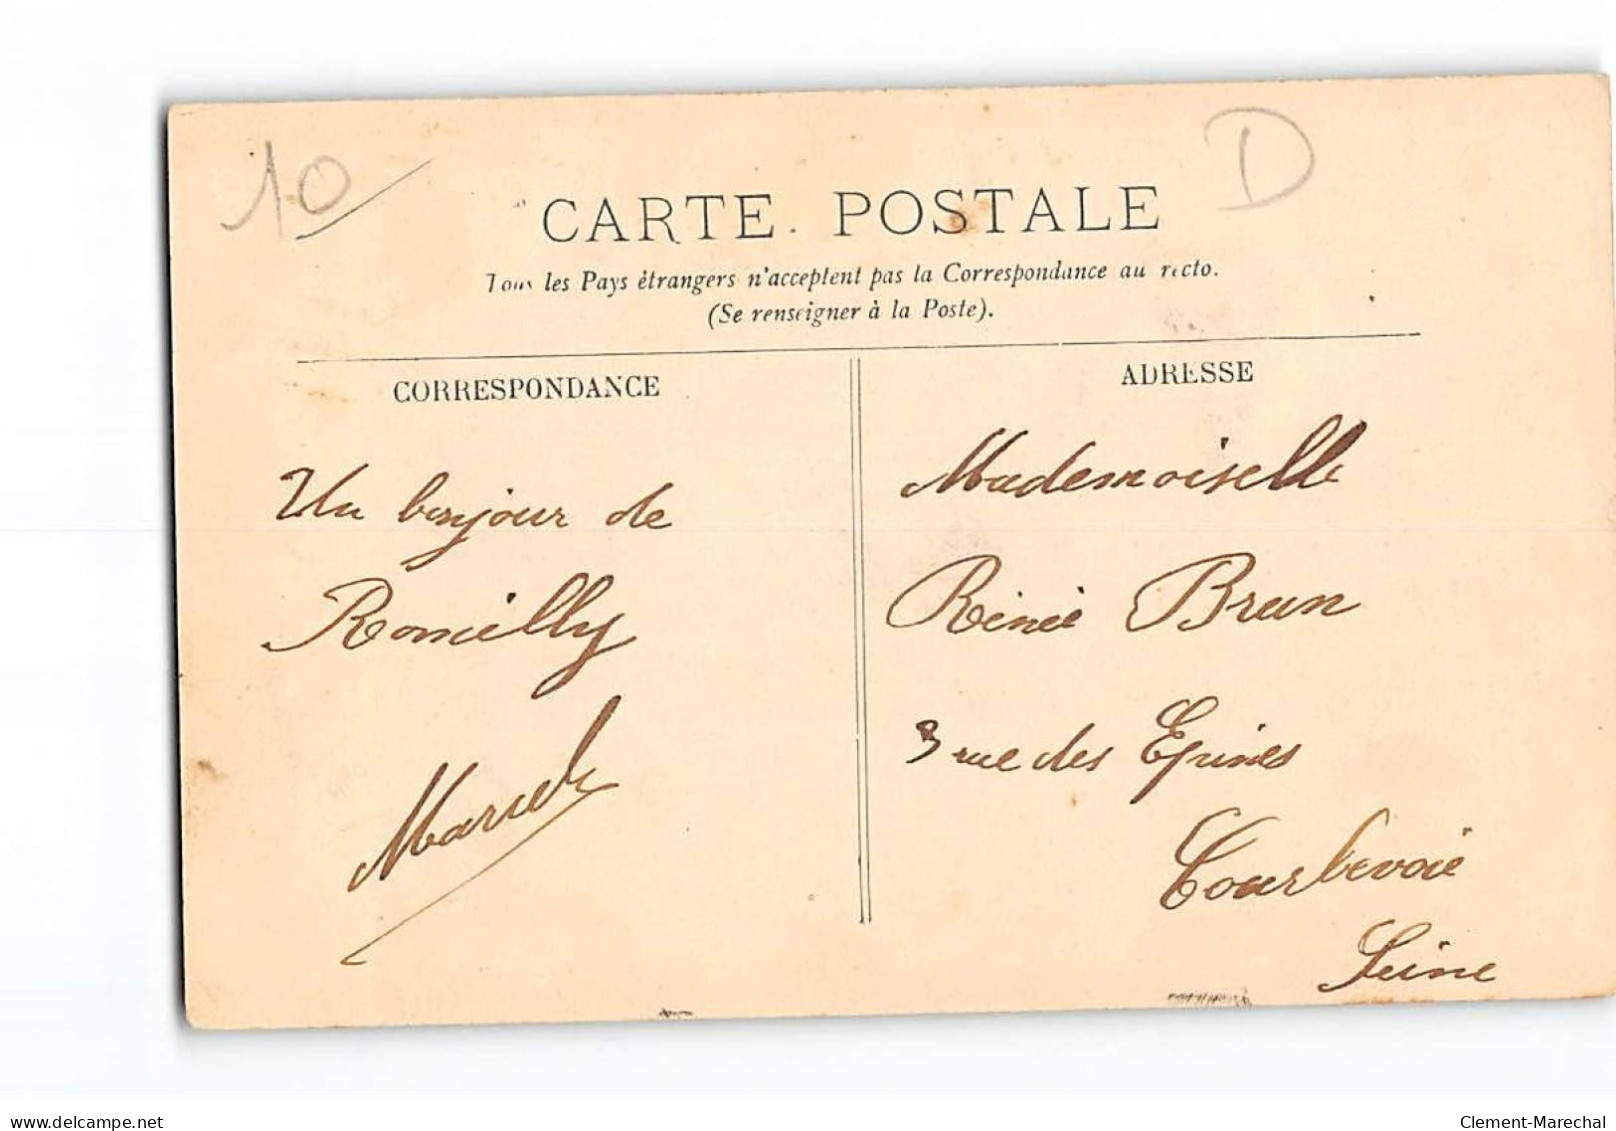 10
D
CARTE POSTALE
Tous les Pays étrangers n'acceptent pas la Correspondance au recto.
(Se renseigner à la Poste).
CORRESPONDANCE
Un bonjour de
Romilly
Marcel
ADRESSE
Mademoiselle
Rénée Brun
3 rue des Epines
Courbevoie
Seine
www.delcampe.net
Clement-Marechal